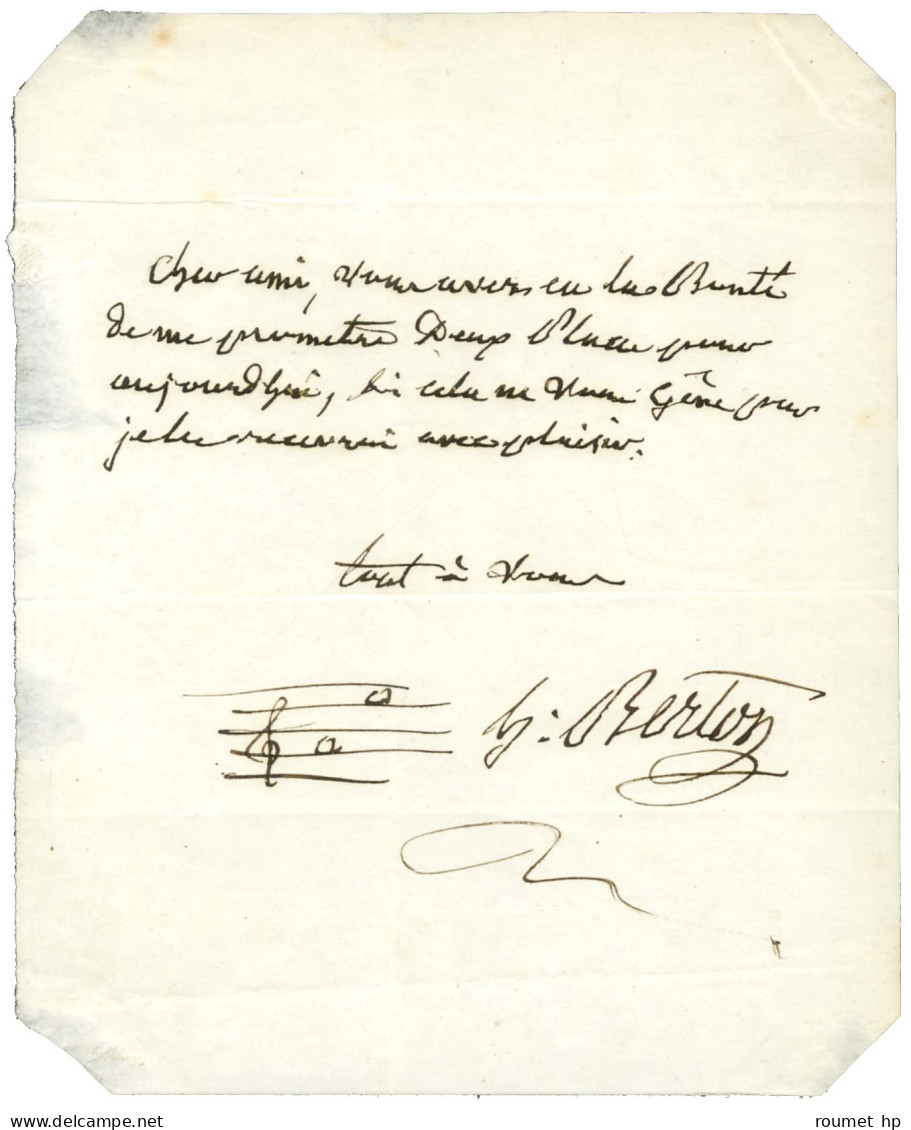 Cher ami, vous avez eu la Bonté
de me prometre Deux Places pour
aujourdhui, si cela ne vous Gêne pas
je les recevrai avec plaisir.
tout à vous
h: Berton
roumet hp